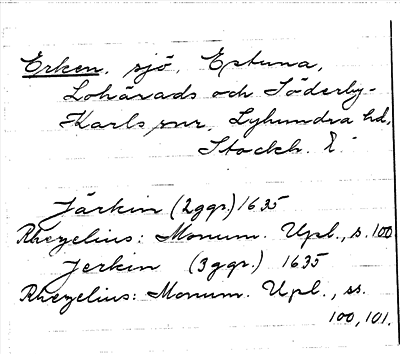 Erken, sjö, Estuna,
Lohärads och Söderby-
Karls snr, Lyhundra hd,
Stockh. l.
Järkin (2 ggr) 1635
Rhezelius: Monum. Upl., s. 100
Jerkin (3 ggr.) 1635
Rhezelius: Monum. Upl., ss.
100, 101.